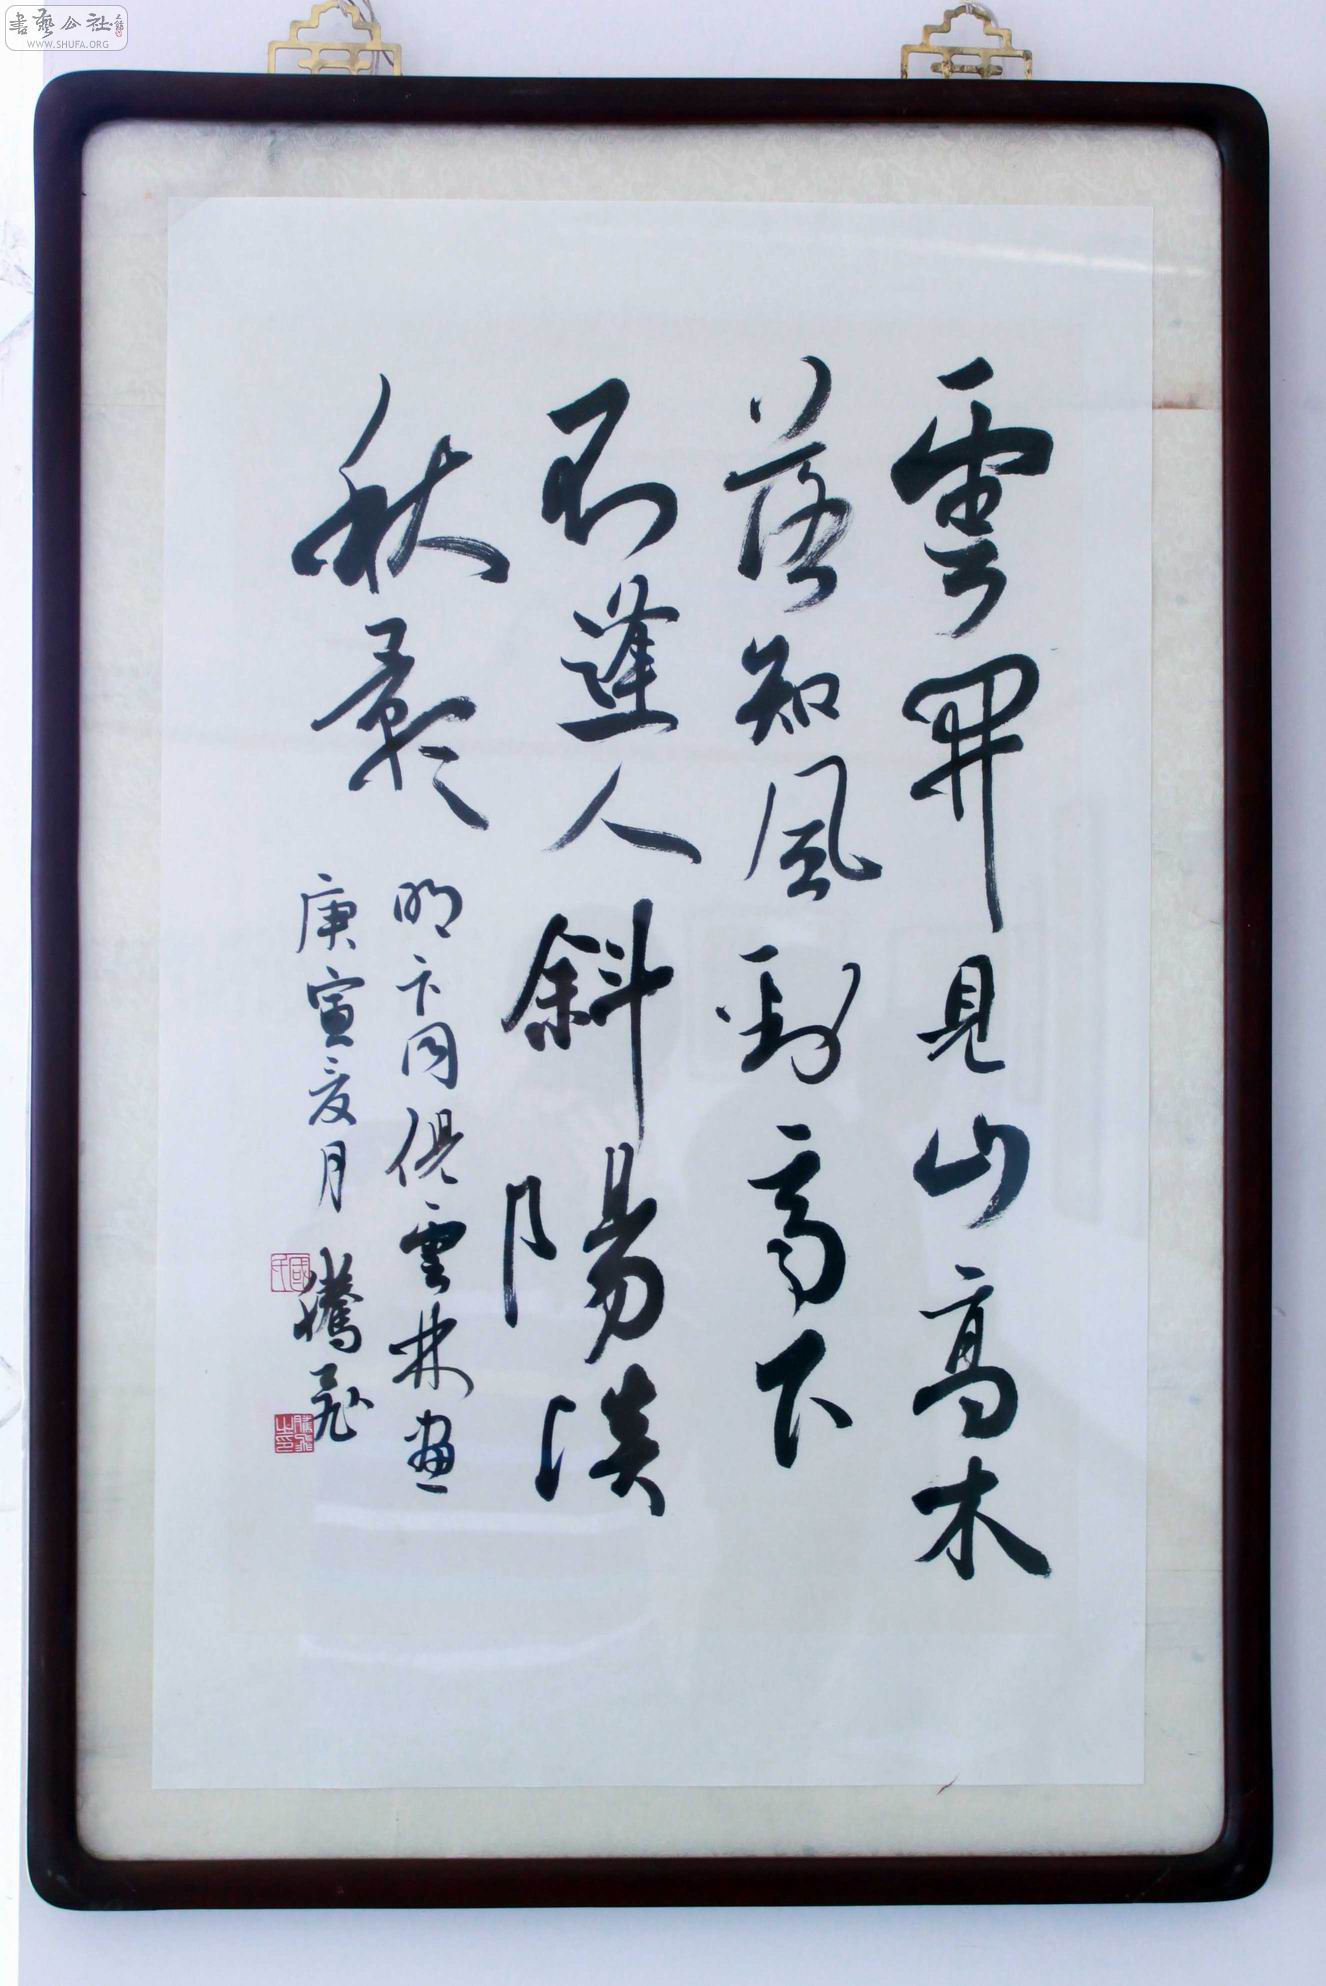 雲開見山高木
落知風到亭下
不逢人斜陽淡
秋影
明卞同倪雲林畫
庚寅夏月 騰飛
書藝公社
WWW.SHUFA.ORG